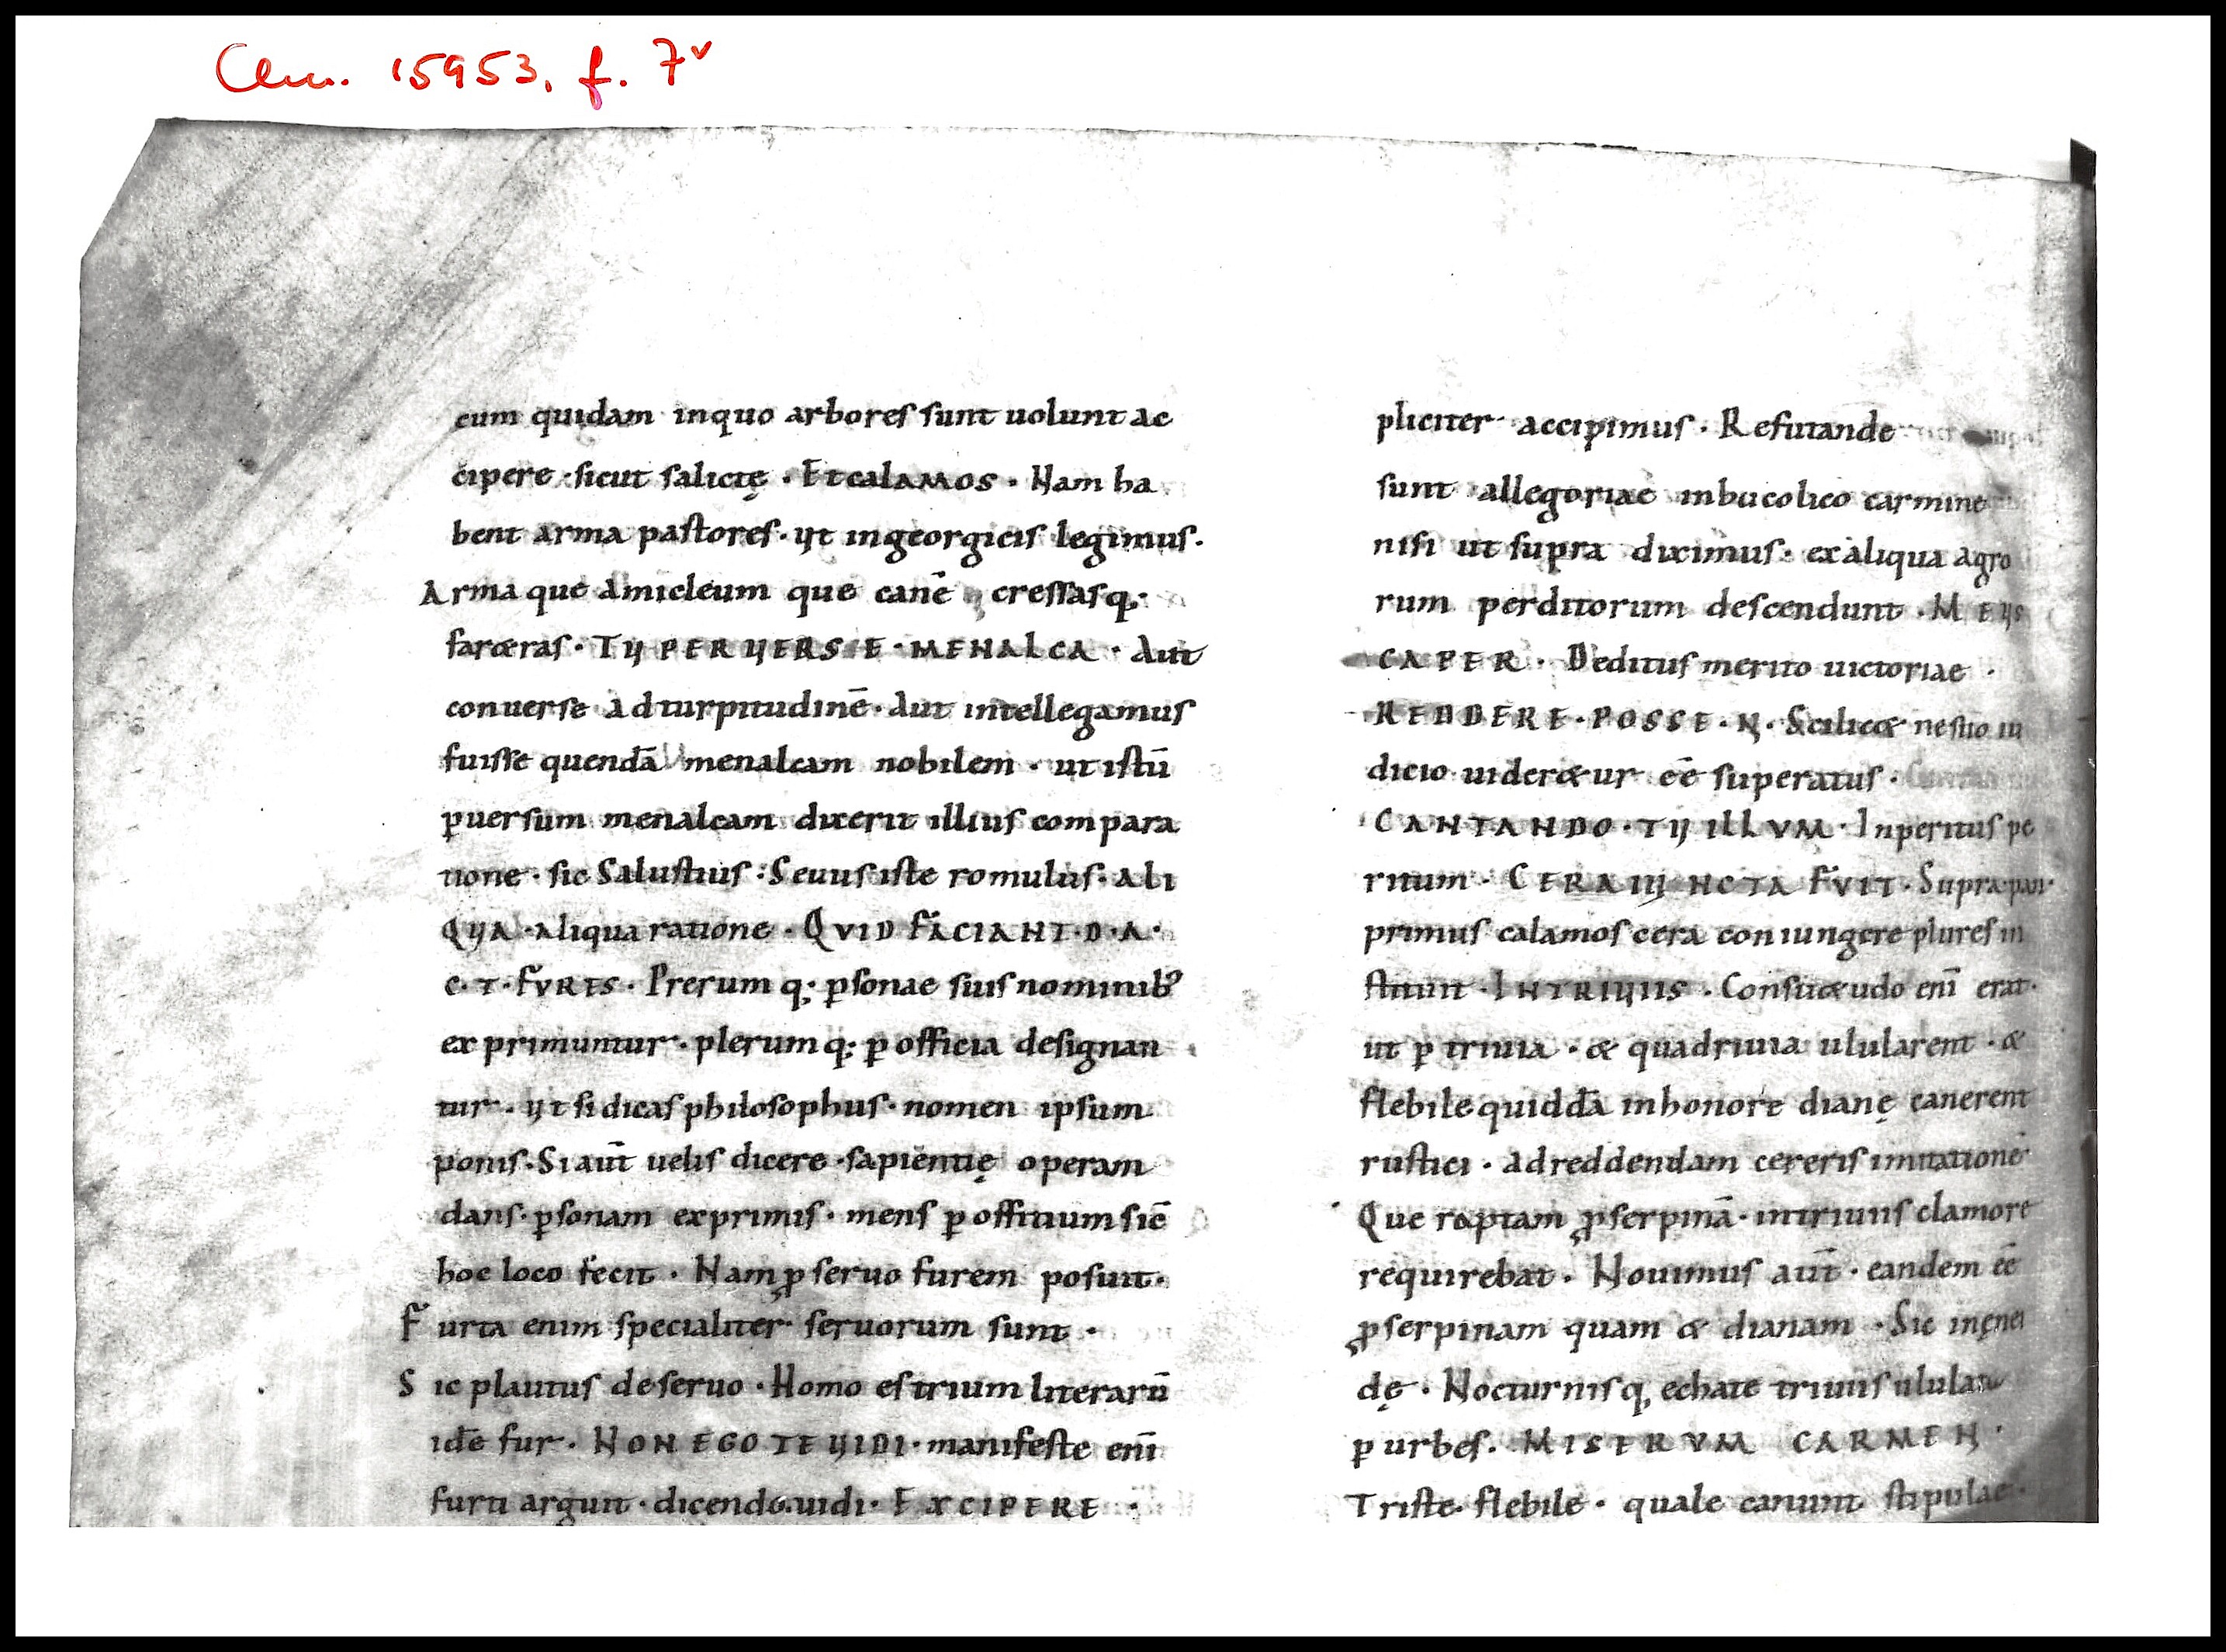 Clm. 15953, f. 7v
cum quidam inquo arbores sunt uolunt ac
cipere · sicut salictę · Et calamos · Nam ha
bent arma pastores · Ut ingeorgicis legimus ·
Arma que amicleum que canē cressasq;
faretras · TU PERUERSE · MENALCA · Aut
conuerse ad turpitudinē · Aut intellegamus
fuisse quendā menalcam nobilem · ut istū
p̱uersum menalcam dixerit illius compara
tione · sic Salustius · Seuus iste romulus · ALI
QUA · aliqua ratione · QVID FACIANT · D · A ·
C · T · FVRES · Prerumq; p̱sonae suis nominib;
exprimuntur · plerumq; p̱ officia designan
tur · Ut si dicas philosophus · nomen ipsum
ponis · Si aūt uelis dicere · sapientię operam
dans · p̱sonam exprimis · mens p̱ offitium sic̄
hoc loco fecit · Nam ꝓ seruo furem posuit ·
Furta enim specialiter seruorum sunt ·
Sic plautus de seruo · Homo es trium literarū
idē fur · NON EGO TE UIDI · manifeste enī
furti arguit · dicendo · uidi · EXCIPERE ·
pliciter accipimus · Refutande
sunt allegoriae inbucolico carmine
nisi ut supra diximus · ex aliqua agro
rum perditorum descendunt · MEUS
CAPER · Deditus merito uictoriae ·
REDDERE · POSSE · N · Scilicet ne suo iu
dicio uideretur eē superatus ·
CANTANDO · TU ILLVM · Inperitus pe
ritum · CERA IUNCTA FVIT · Supra pan
primus calamos cera coniungere plures in
stituit · INTRIUIIS · Consuetudo enī erat ·
ut p̱ triuia · & quadriuia ulularent · &
flebile quiddā in honore dianę canerent
rustici · ad reddendam cereris imitationē
Que raptam ꝓserpinā · in triuiis clamore
requirebat · Nouimus aūt · eandem eē
ꝓserpinam quam & dianam · Sic in ęnei
dę · Nocturnisq; echate triuiis ululata
p̱ urbes · MISERVM CARMEN ·
Triste flebile · quale canunt stipulae ·